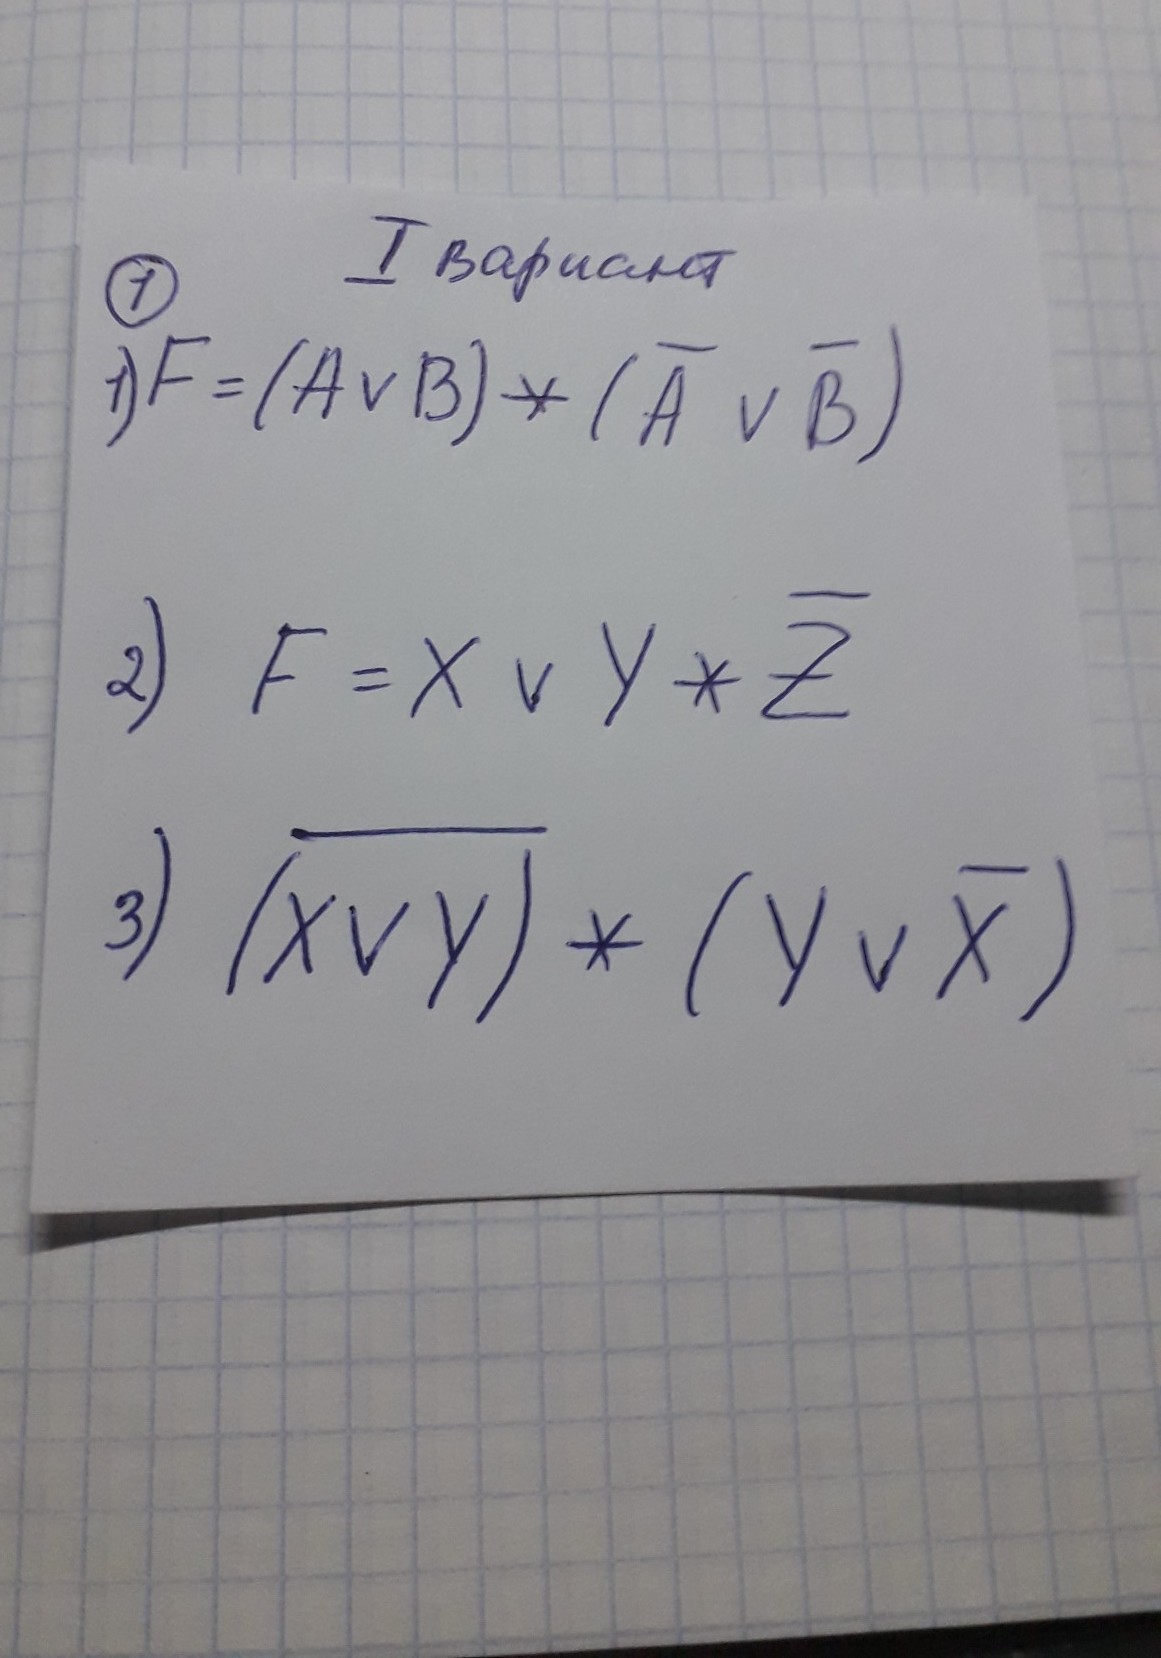 I вариант
①
1) F = (A v B) * (A̅ v B̅)
2) F = X v Y * Z̅
3) (X̅ ̅v̅ ̅Y̅) * (Y v X̅)